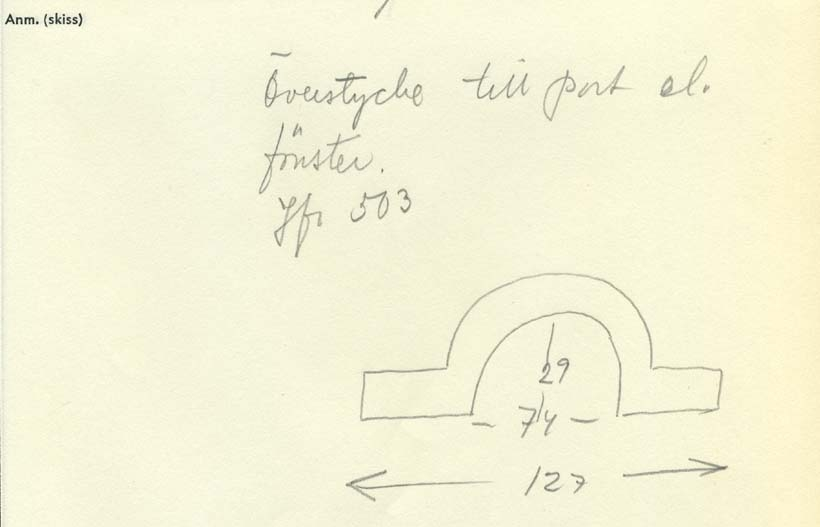 Anm. (skiss)
Överstycke till port el.
fönster.
Jfr 503
29
74
127